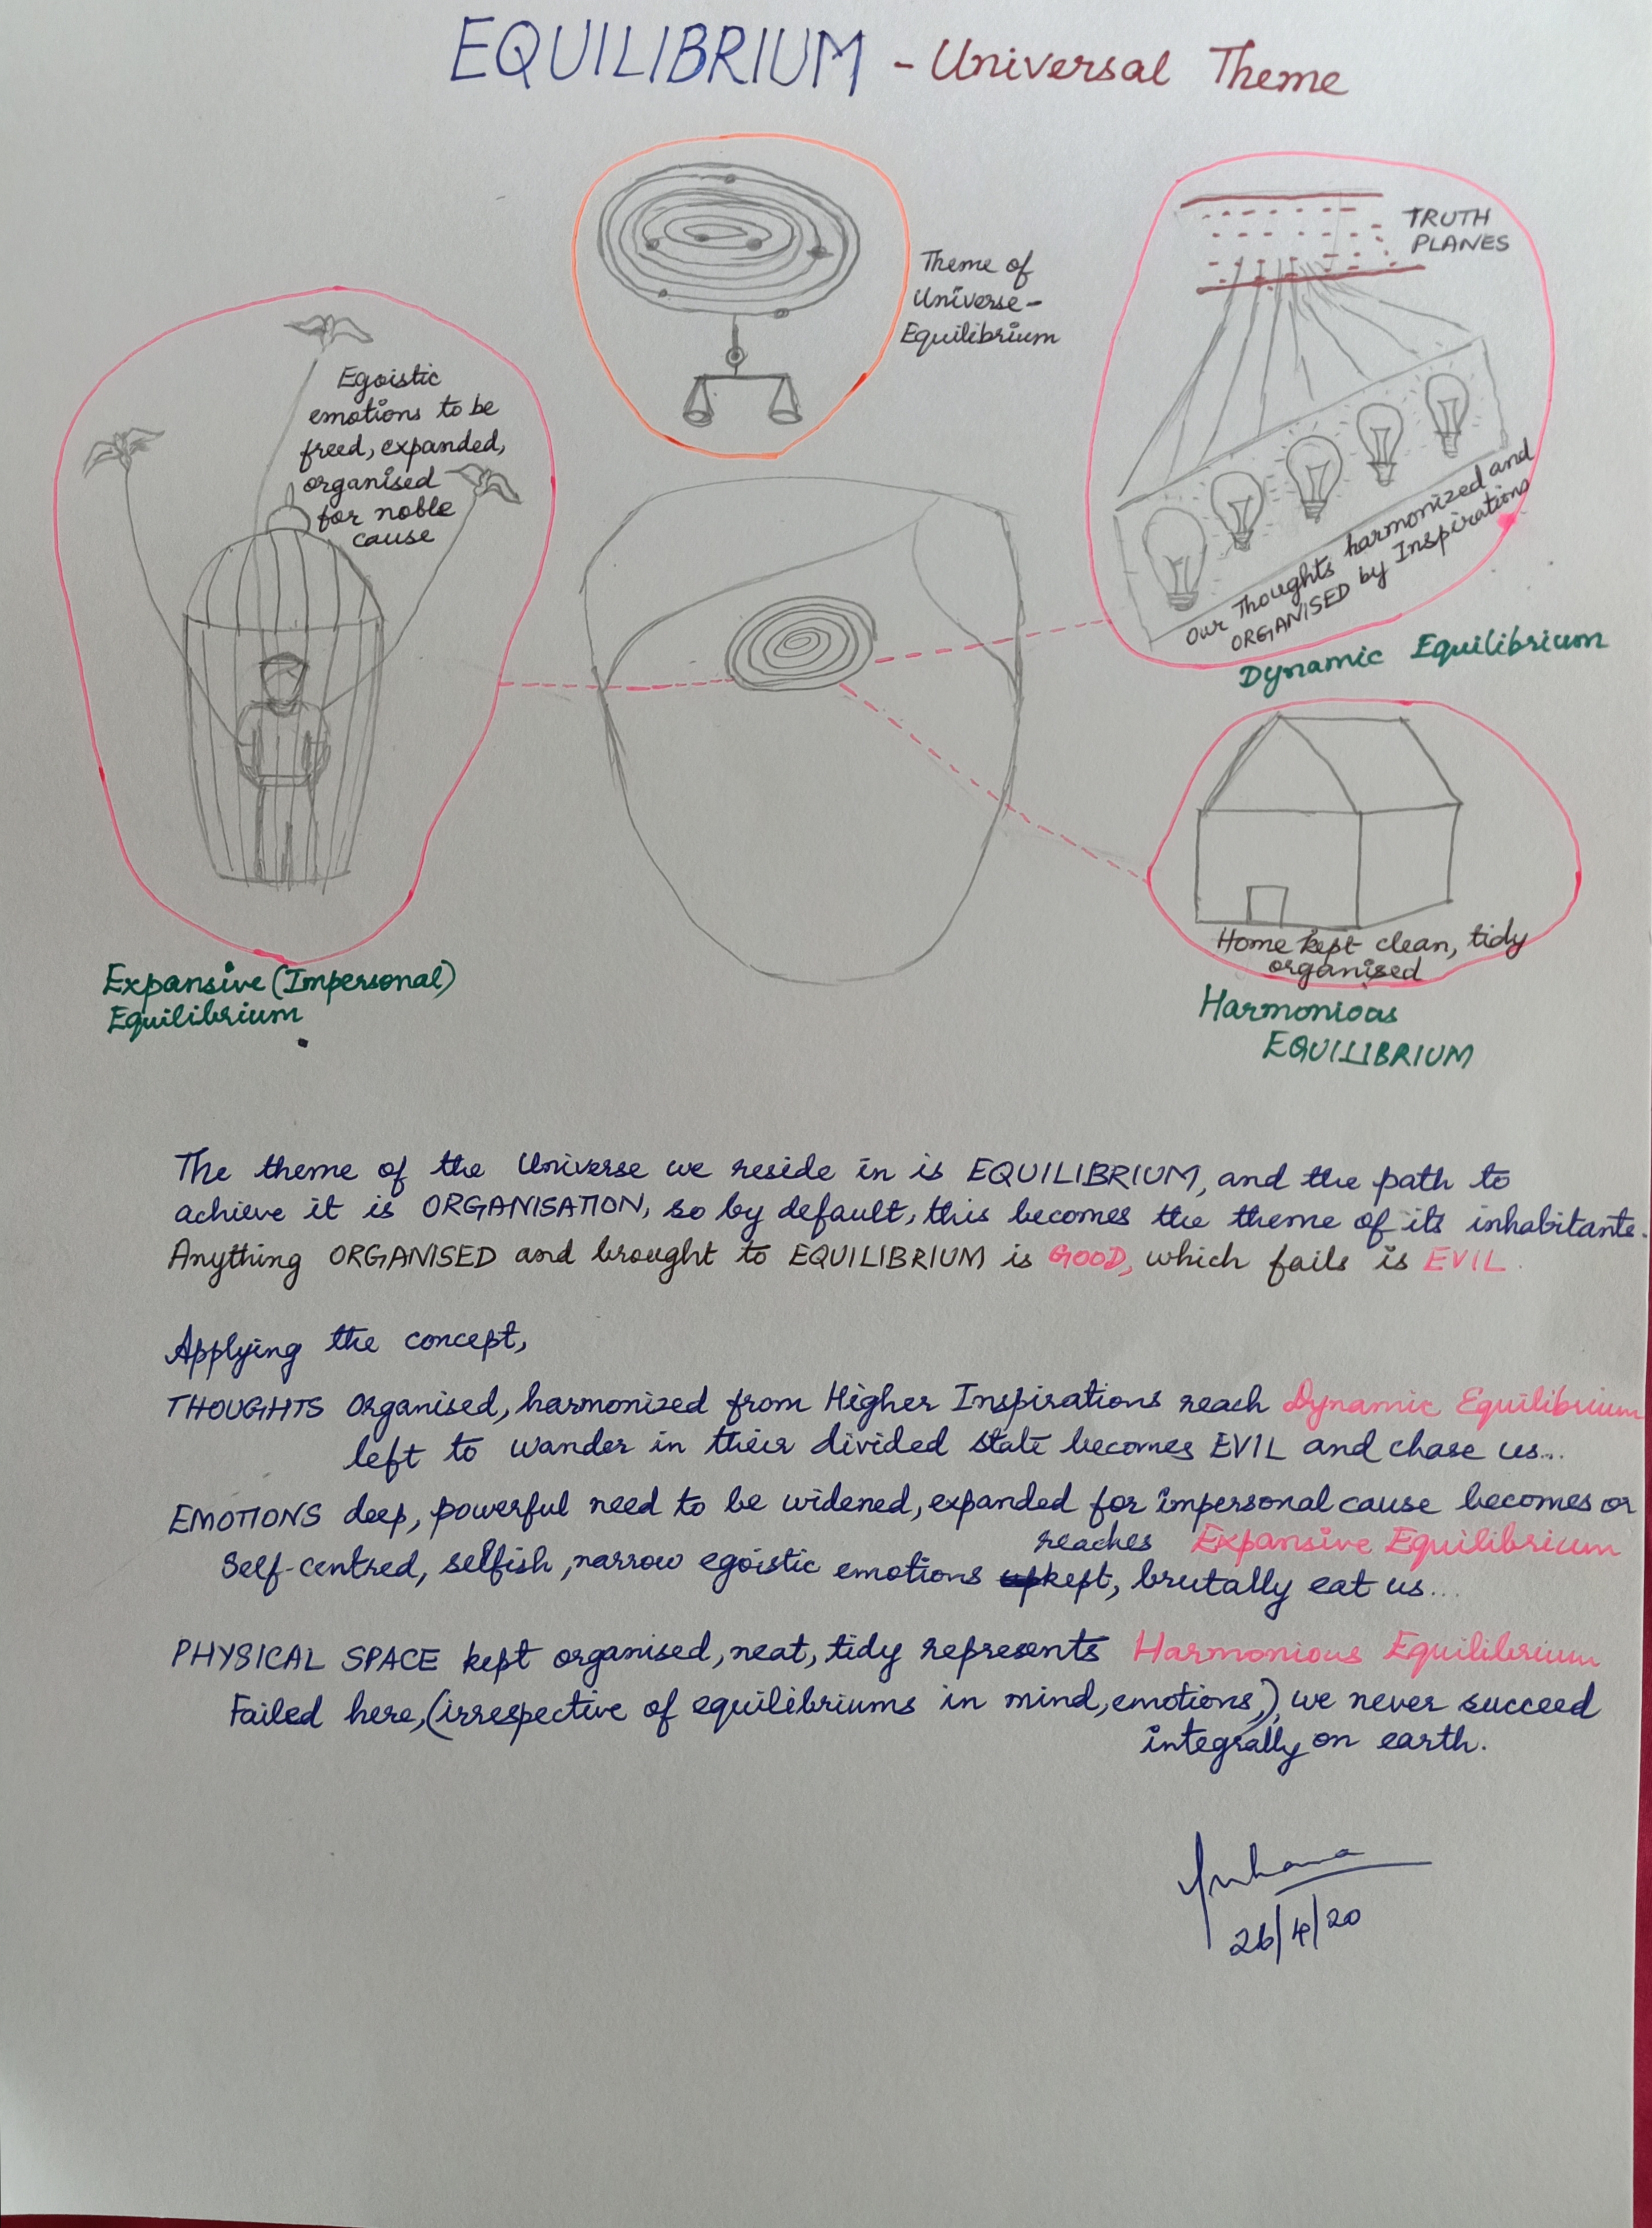 EQUILIBRIUM - Universal Theme
Theme of
Universe-
Equilibrium
TRUTH
PLANES
Our Thoughts harmonized and
ORGANISED by Inspirations
Dynamic Equilibrium
Egoistic
emotions to be
freed, expanded,
organised
for noble
cause
Expansive (Impersonal)
Equilibrium
Home kept clean, tidy
organised
Harmonious
EQUILIBRIUM
The theme of the Universe we reside in is EQUILIBRIUM, and the path to
achieve it is ORGANISATION, so by default, this becomes the theme of its inhabitants.
Anything ORGANISED and brought to EQUILIBRIUM is GOOD, which fails is EVIL.
Applying the concept,
THOUGHTS Organised, harmonized from Higher Inspirations reach Dynamic Equilibrium
left to wander in their divided state becomes EVIL and chase us...
EMOTIONS deep, powerful need to be widened, expanded for impersonal cause becomes or
reaches Expansive Equilibrium
Self-centred, selfish, narrow egoistic emotions kept, brutally eat us...
PHYSICAL SPACE kept organised, neat, tidy represents Harmonious Equilibrium
Failed here, (irrespective of equilibriums in mind, emotions,), we never succeed
integrally on earth.
26/4/20